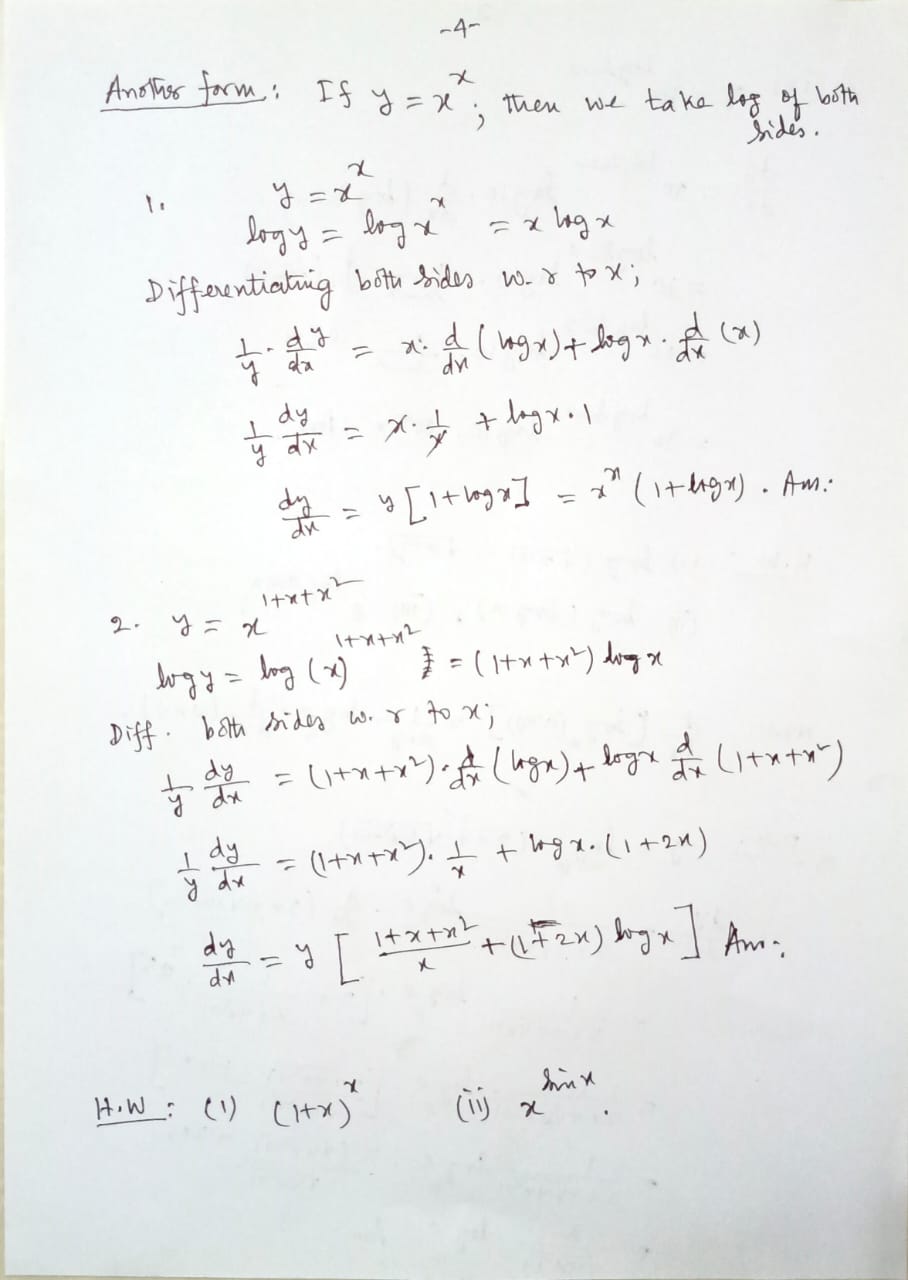 -4-
Another form: If y = x^x; then we take log of both
sides.
1. y = x^x
log y = log x^x = x log x
Differentiating both sides w. r to x;
1/y · dy/dx = x· d/dx (log x) + log x · d/dx (x)
1/y dy/dx = x · 1/x + log x · 1
dy/dx = y [1 + log x] = x^x (1 + log x) . Ans.
2. y = x^(1+x+x²)
log y = log (x)^(1+x+x²) = (1+x+x²) log x
Diff. both sides w. r to x;
1/y dy/dx = (1+x+x²) · d/dx (log x) + log x d/dx (1+x+x²)
1/y dy/dx = (1+x+x²) · 1/x + log x · (1+2x)
dy/dx = y [ (1+x+x²)/x + (1+2x) log x ] Ans:
H.W : (1) (1+x)^x (ii) x^(sin x) .